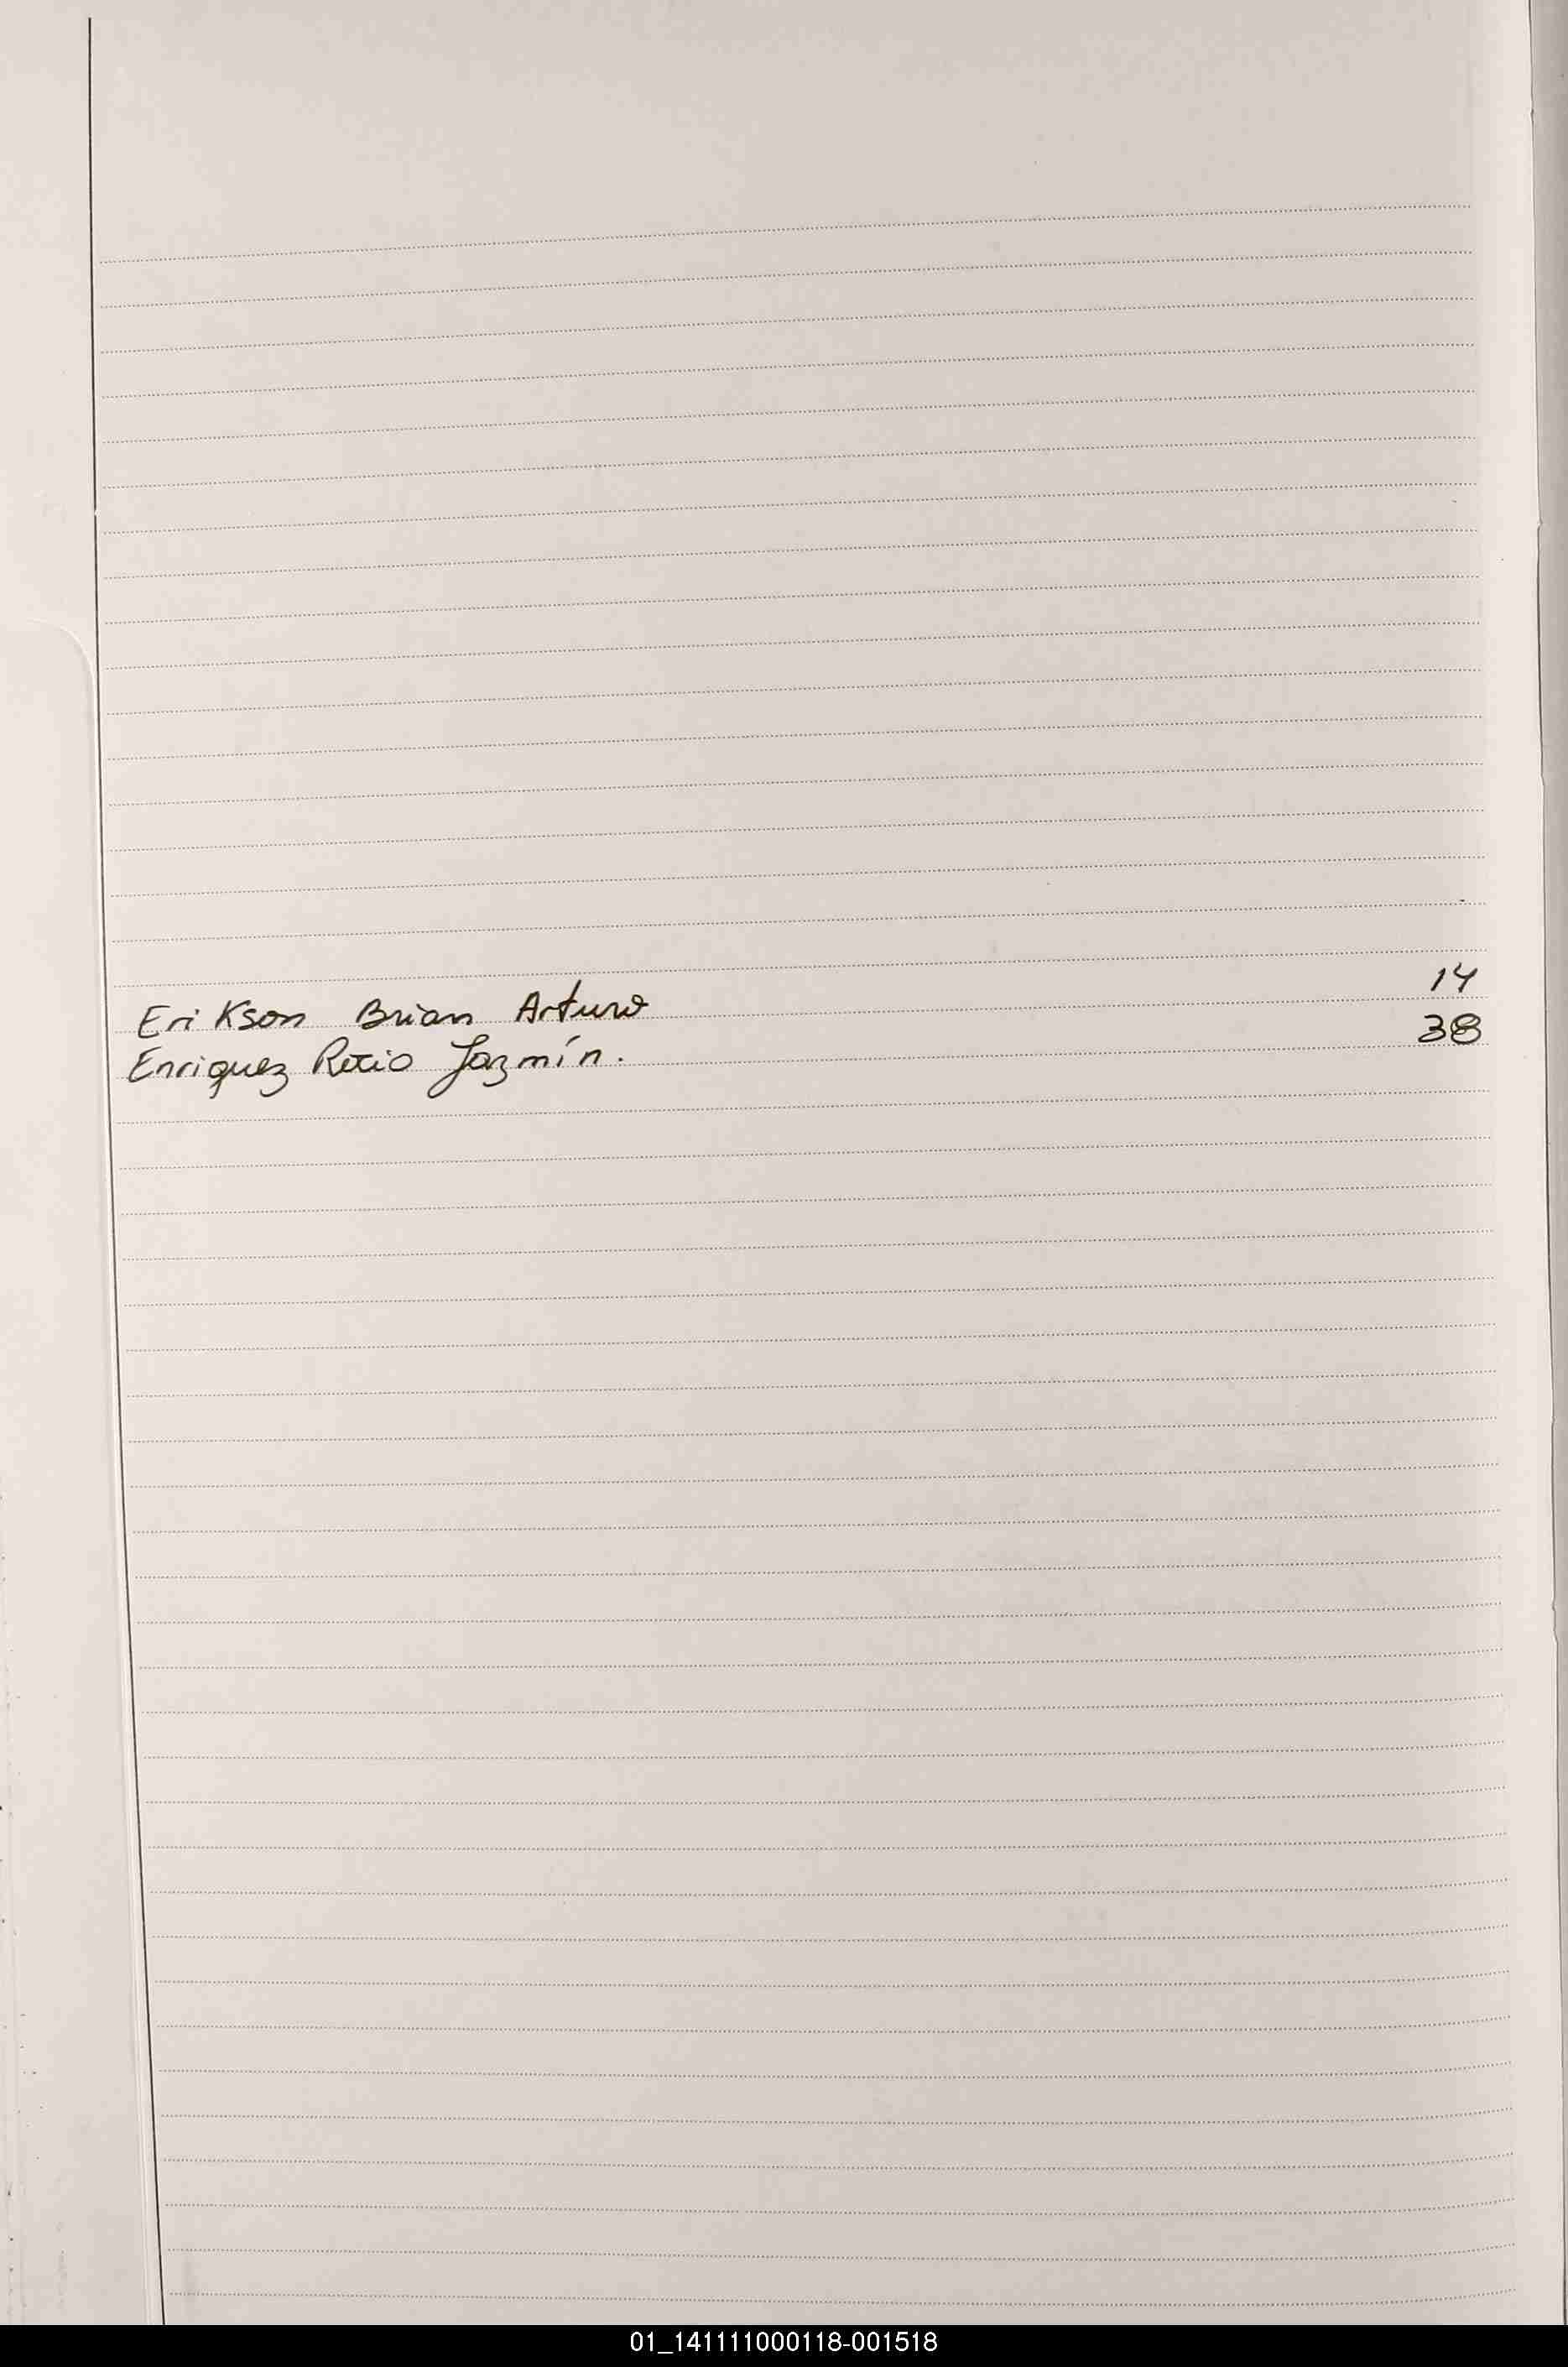 Erikson Brian Arturo 14
Enriquez Rocio Jazmín. 38
01_141111000118-001518